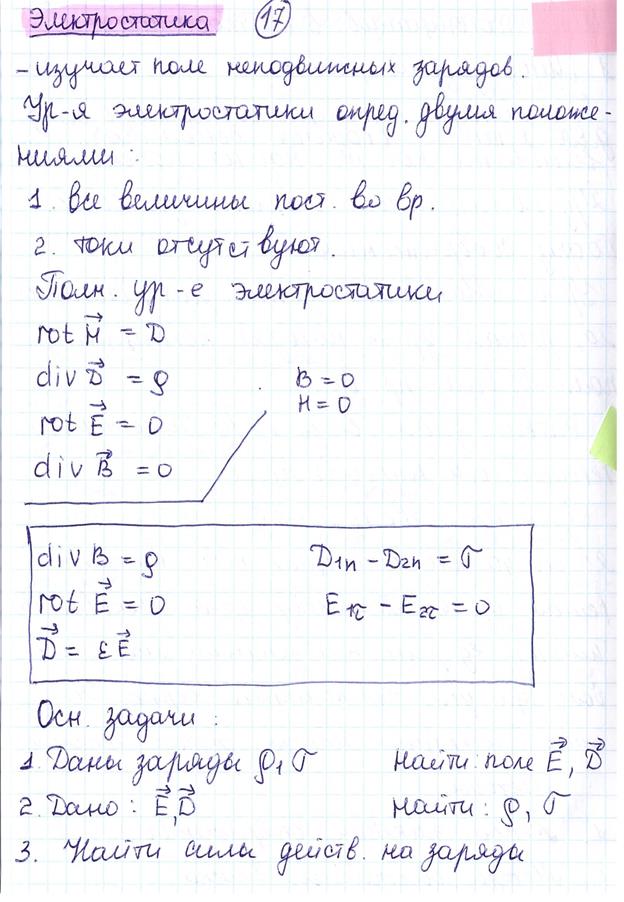 Электростатика 17
– изучает поле неподвижных зарядов.
Ур-я электростатики опред. двумя положе-
ниями:
1. все величины пост. во вр.
2. токи отсутствуют.
Полн. ур-е электростатики
rot H⃗ = D
div D⃗ = ρ B = 0
rot E⃗ = 0 H = 0
div B⃗ = 0
div B = ρ D1n – D2n = σ
rot E⃗ = 0 E1τ – E2τ = 0
D⃗ = εE⃗
Осн. задачи:
1. Даны заряды ρ, σ Найти: поле E⃗, D⃗
2. Дано: E⃗, D⃗ Найти: ρ, σ
3. Найти силы действ. на заряды